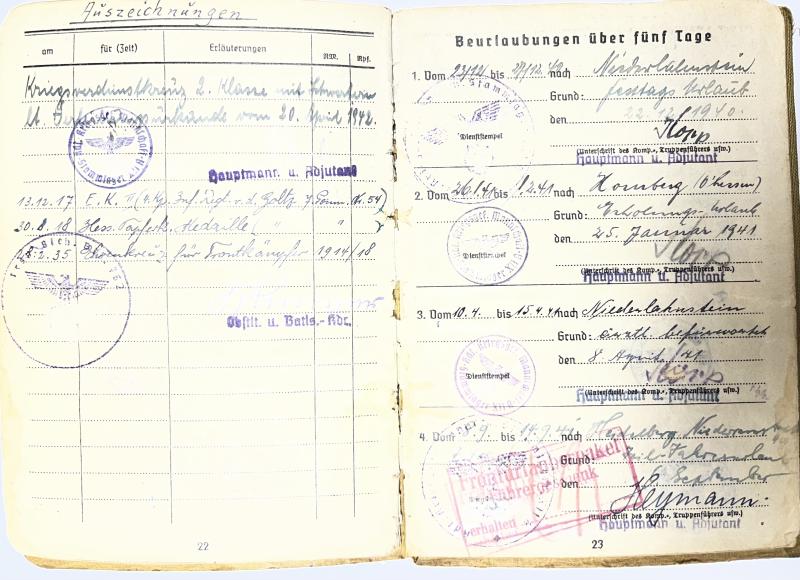 Auszeichnungen
am für (Zeit) Erläuterungen R.W. Rpf.
Kriegsverdienstkreuz 2. Klasse mit Schwertern
lt. Verleihungsurkunde vom 20. April 1942.
Hauptmann u. Adjutant
13.12.17 E.K. II Inf. Rgt. v. d. Goltz 7. Pomm. Nr. 54)
30.8.18 Hess. Tapferk. Medaille ( " " )
2.35 Ehrenkreuz für Frontkämpfer 1914/18
Obstlt. u. Batls.-Kdr.
22
Beurlaubungen über fünf Tage
1. Vom 23/12. bis nach Niederlahnstein
Grund: Festtags Urlaub
den 22. 1940.
Kopp
Dienststempel
(Unterschrift des Komp.-, Truppenführers usw.)
Hauptmann u. Adjutant
2. Vom 26.1.41 bis 2.41 nach Homberg (O'hessen)
Grund: Erholungs-Urlaub
den 25. Januar 1941
Kopp
Dienststempel
(Unterschrift des Komp.-, Truppenführers usw.)
Hauptmann u. Adjutant
3. Vom 10.4. bis 15.4.41 nach Niederlahnstein
Grund: ärztl. befürwortet
den 8. April 41
Kopp
Dienststempel
(Unterschrift des Komp.-, Truppenführers usw.)
Hauptmann u. Adjutant
4. Vom 9. bis 9.41 nach Heidelberg
Grund:
den September
Heymann.
erhalten
(Unterschrift des Komp.-, Truppenführers usw.)
Hauptmann u. Adjutant
23